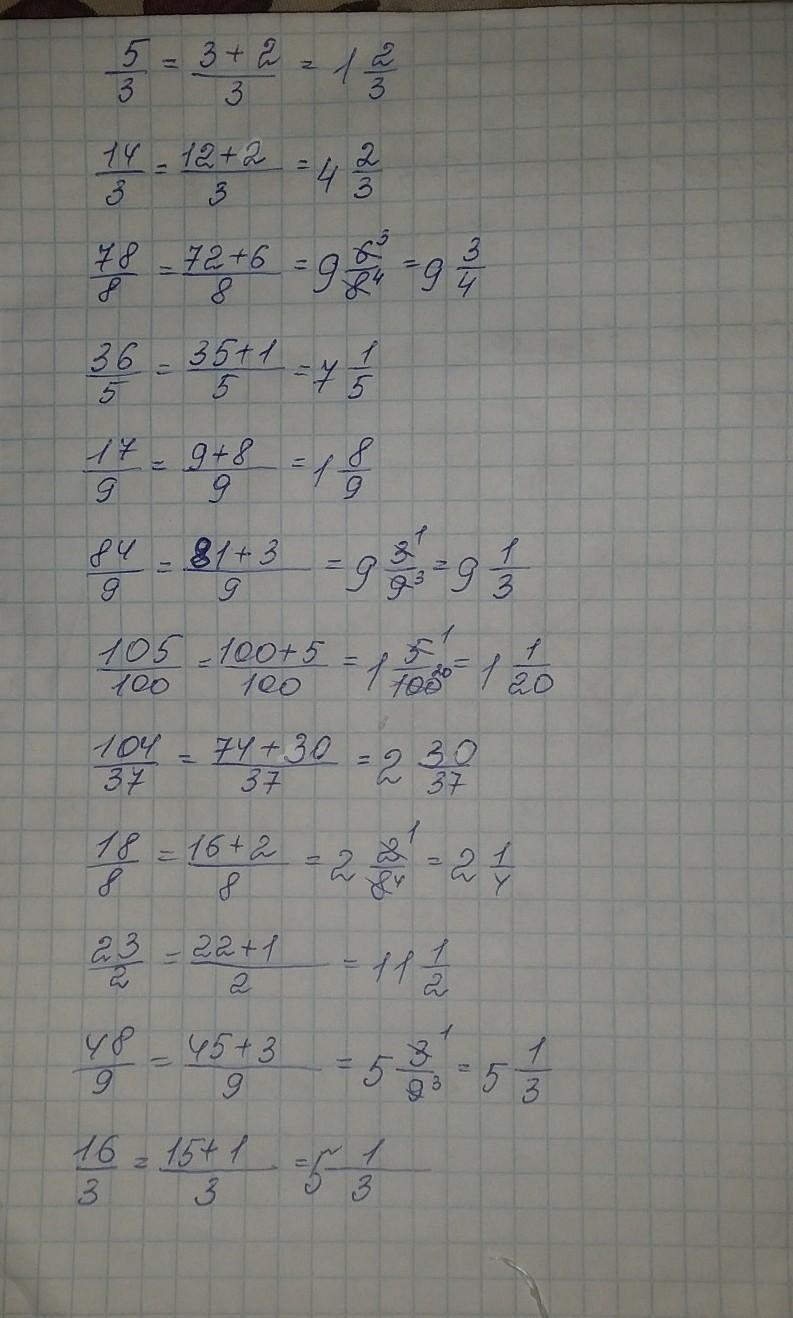 5/3 = (3+2)/3 = 1 2/3
14/3 = (12+2)/3 = 4 2/3
78/8 = (72+6)/8 = 9 6³/8⁴ = 9 3/4
36/5 = (35+1)/5 = 7 1/5
17/9 = (9+8)/9 = 1 8/9
84/9 = (81+3)/9 = 9 3¹/9³ = 9 1/3
105/100 = (100+5)/100 = 1 5¹/100²⁰ = 1 1/20
104/37 = (74+30)/37 = 2 30/37
18/8 = (16+2)/8 = 2 2¹/8⁴ = 2 1/4
23/2 = (22+1)/2 = 11 1/2
48/9 = (45+3)/9 = 5 3¹/9³ = 5 1/3
16/3 = (15+1)/3 = 5 1/3